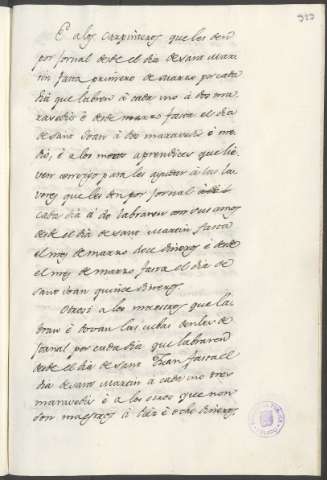 E a los Carpinteros que les den
por Jornal desde el dia de sant Mar
tin fasta primero de marzo por cada
dia que labren a cada uno a dos ma
ravedis e desde marzo fasta el dia
de Sant Joan a dos maravedis e me
dio, e a los mozos aprendices que lie
ven consigo para les ayudar a las la
vores que les den por Jornal
Cada dia a do labraren con sus amos
desde el dia de sant Martin fasta
el mes de marzo doce dineros e desde
el mes de marzo fasta el dia de
sant Joan quince dineros.
Otrosi a los maestros que la
bran e las cubas denles de
Jornal por cada dia que labraren
desde el dia de sant Juan fasta el
dia de sant Martin a cada uno tres
maravedis e a los otros que non
son maestros a diez e ocho dineros,